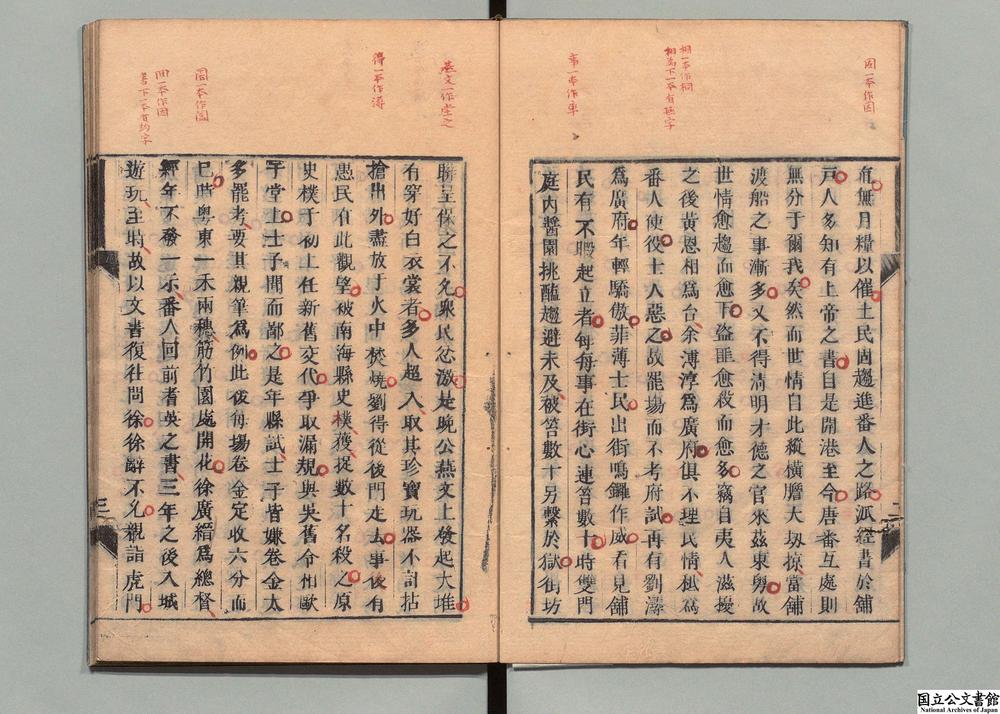 固一本作因
相一本作桐
相爲下一本有極字
事一本作車
有無月糧以催土民固趨進番人之路派經書於舖
戸人多知有上帝之書自是開港至今唐番互處則
無分于爾我矣然而世情自此縱橫膽大刼掠富舖
渡船之事漸多又不得清明才德之官來茲東粤故
世情愈趨而愈下盜匪愈殺而愈多竊自夷人滋擾
之後黃恩相爲台余溥淳爲廣府俱不理民情
番人使役士人惡之故罷塲而不考府試再有劉潯
爲廣府年輕驕傲菲薄士民出街鳴鑼作威看見舖
民有不暇起立者每每事在街心連笞數十時雙門
庭內醬園挑醢趨避未及被笞數十另繫於獄街坊
燕文一作堂之
得一本作潯
園一本作圍
回一本作因
書下一本有約字
聯呈保之不允衆民忿激是晚公燕文上發起大堆
有穿好白衣裳者多人超入取其珍寶玩器不計拈
搶出外盡放于火中焚燒劉得從後門走去事後有
愚民在此觀望被南海縣史樸獲捉數十名殺之原
史樸于初上任新舊交代爭取漏規與吳舊令相毆
于堂上士子聞而鄙之是年縣試士子皆嫌卷金太
多罷考要其親筆爲例此後每塲卷金定收六分而
已時粤東一禾兩穗筋竹園處開花徐廣縉爲總督
經年不發一示番人回前者英之書三年之後入城
遊玩至時故以文書復往問徐徐辭不允親詣虎門
二
三
国立公文書館
National Archives of Japan